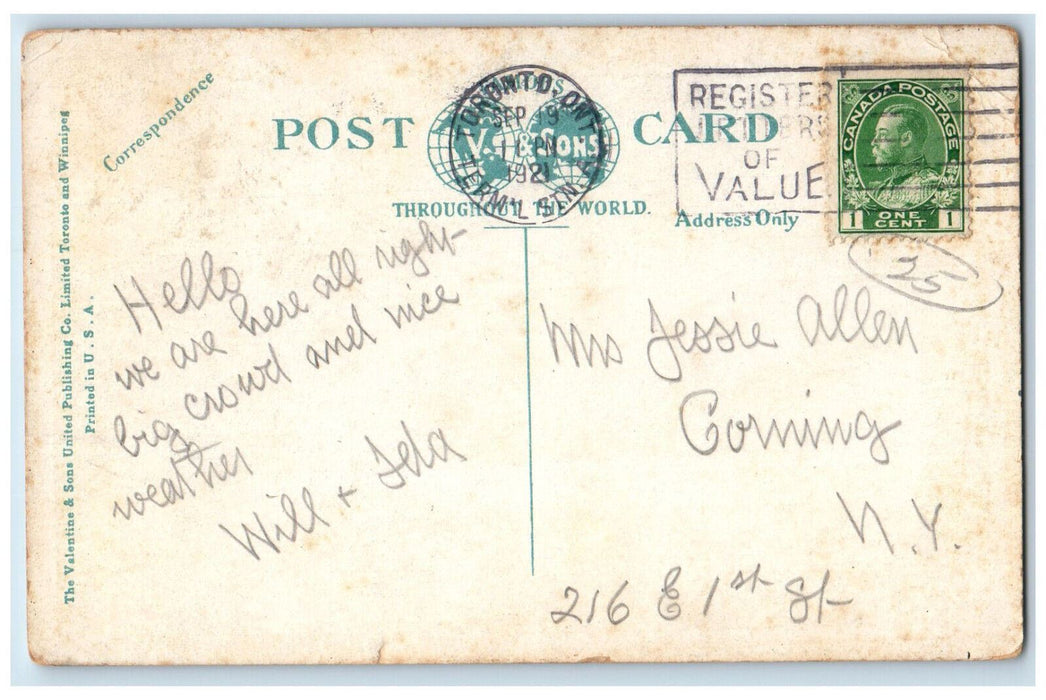 The Valentine & Sons United Publishing Co. Limited Toronto and Winnipeg
Printed in U. S. A.
Correspondence
POST CARD
V. & SONS
THROUGHOUT THE WORLD.
Address Only
TORONTO, ONT
SEP 19
PM
1921
TERM'L
REGISTER
OF
VALUE
CANADA POSTAGE
1 ONE CENT 1
25
Hello
we are here all right
big crowd and nice
weather
Will +
Mrs Jessie Allen
Corning
N.Y.
216 E 1st St